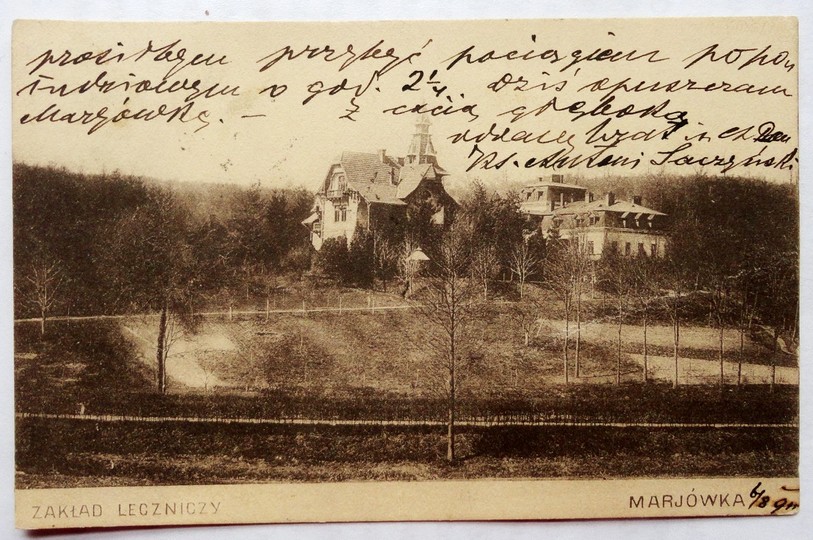 prosiłbym przybyć pociągiem popo
łudniowym o god. 2¼. Dziś opuszczam
Marjówkę. — z czcią głęboką
oddany brat w Ch. Panu
Ks. Antoni Saczyński
ZAKŁAD LECZNICZY
MARJÓWKA 6/8 911